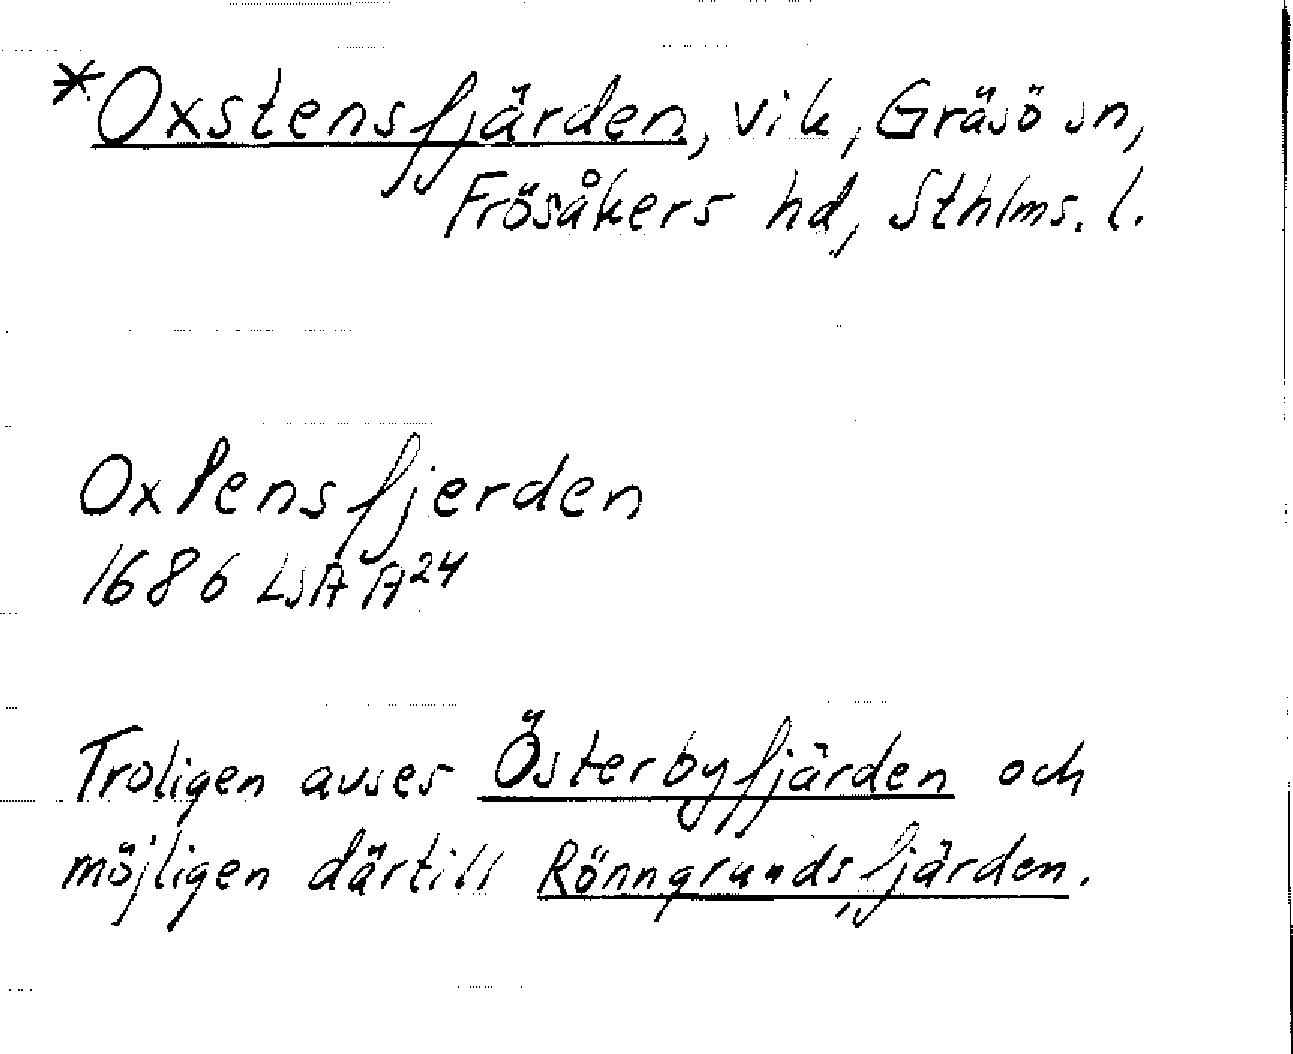 *Oxstensfjärden, vik, Gräsö sn,
Frösåkers hd, Sthlms. l.
Oxlensfjerden
1686 LSA A24
Troligen avses Österbyfjärden och
möjligen därtill Rönngrundsfjärden.